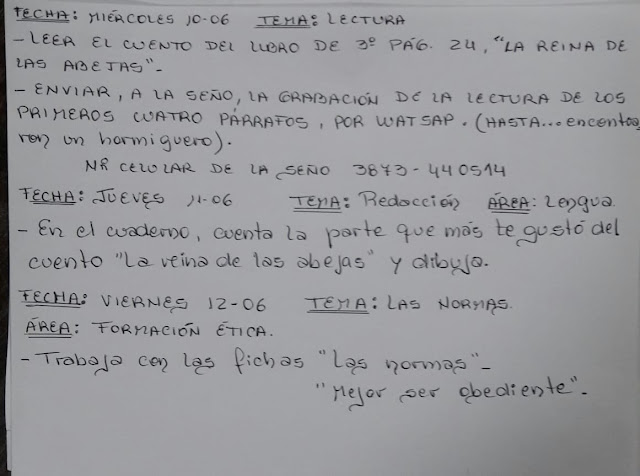 FECHA: MIÉRCOLES 10-06 TEMA: LECTURA
- LEER EL CUENTO DEL LIBRO DE 3º PÁG. 24, "LA REINA DE
LAS ABEJAS"-
- ENVIAR, A LA SEÑO, LA GRABACIÓN DE LA LECTURA DE LOS
PRIMEROS CUATRO PÁRRAFOS, POR WATSAP. (HASTA... encontra
ron un hormiguero).
NR CELULAR DE LA SEÑO 3873-440514
FECHA: JUEVES 11-06 TEMA: Redacción ÁREA: Lengua
- En el cuaderno, cuenta la parte que más te gustó del
cuento "La reina de las abejas" y dibuja.
FECHA: VIERNES 12-06 TEMA: LAS NORMAS.
ÁREA: FORMACIÓN ÉTICA.
- Trabaja con las fichas "Las normas"-
"Mejor ser obediente".-